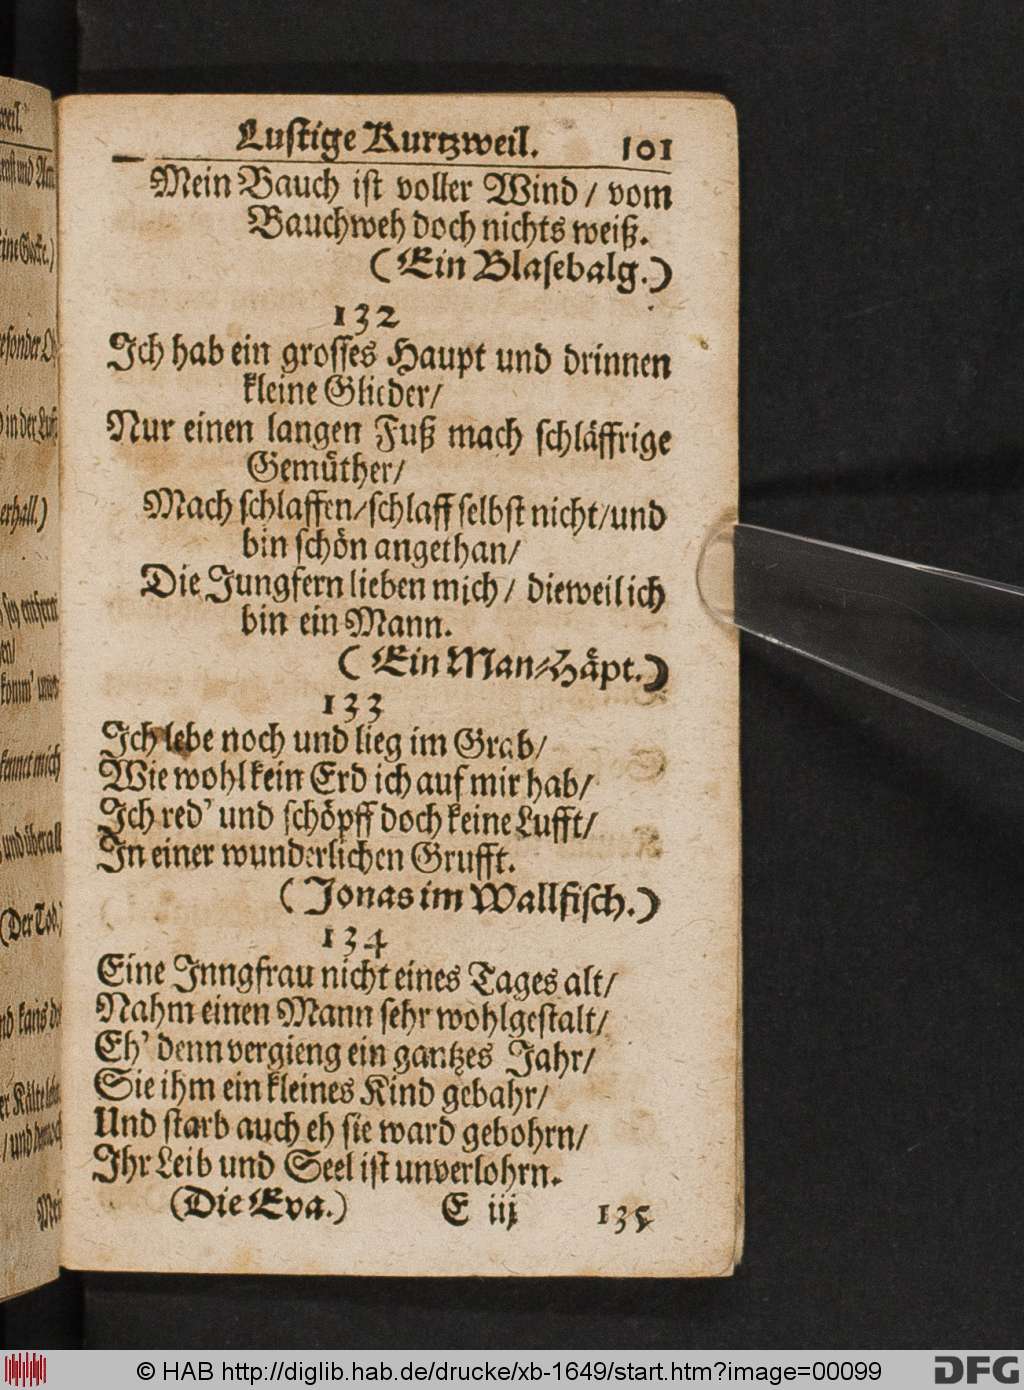 Lustige Kurtzweil. 101
Mein Bauch ist voller Wind / vom
Bauchweh doch nichts weiß.
(Ein Blasebalg.)
132
Ich hab ein grosses Haupt und drinnen
kleine Glieder/
Nur einen langen Fuß mach schläffrige
Gemüther/
Mach schlaffen/schlaff selbst nicht/und
bin schön angethan/
Die Jungfern lieben mich / dieweil ich
bin ein Mann.
(Ein Man-Häpt.)
133
Ich lebe noch und lieg im Grab/
Wie wohl kein Erd ich auf mir hab/
Ich red' und schöpff doch keine Lufft/
In einer wunderlichen Grufft.
(Jonas im Wallfisch.)
134
Eine Inngfrau nicht eines Tages alt/
Nahm einen Mann sehr wohlgestalt/
Eh' denn vergieng ein gantzes Jahr/
Sie ihm ein kleines Kind gebahr/
Und starb auch eh sie ward gebohrn/
Ihr Leib und Seel ist unverlohrn.
(Die Eva.) E iij 135
weil.
eine Glocke.)
sonder
in der Lufft
erhall.)
kennet mich
und überall
(Der Tod.)
und kans
er Kälte
/ und dennoch
Mein
© HAB http://diglib.hab.de/drucke/xb-1649/start.htm?image=00099
DFG